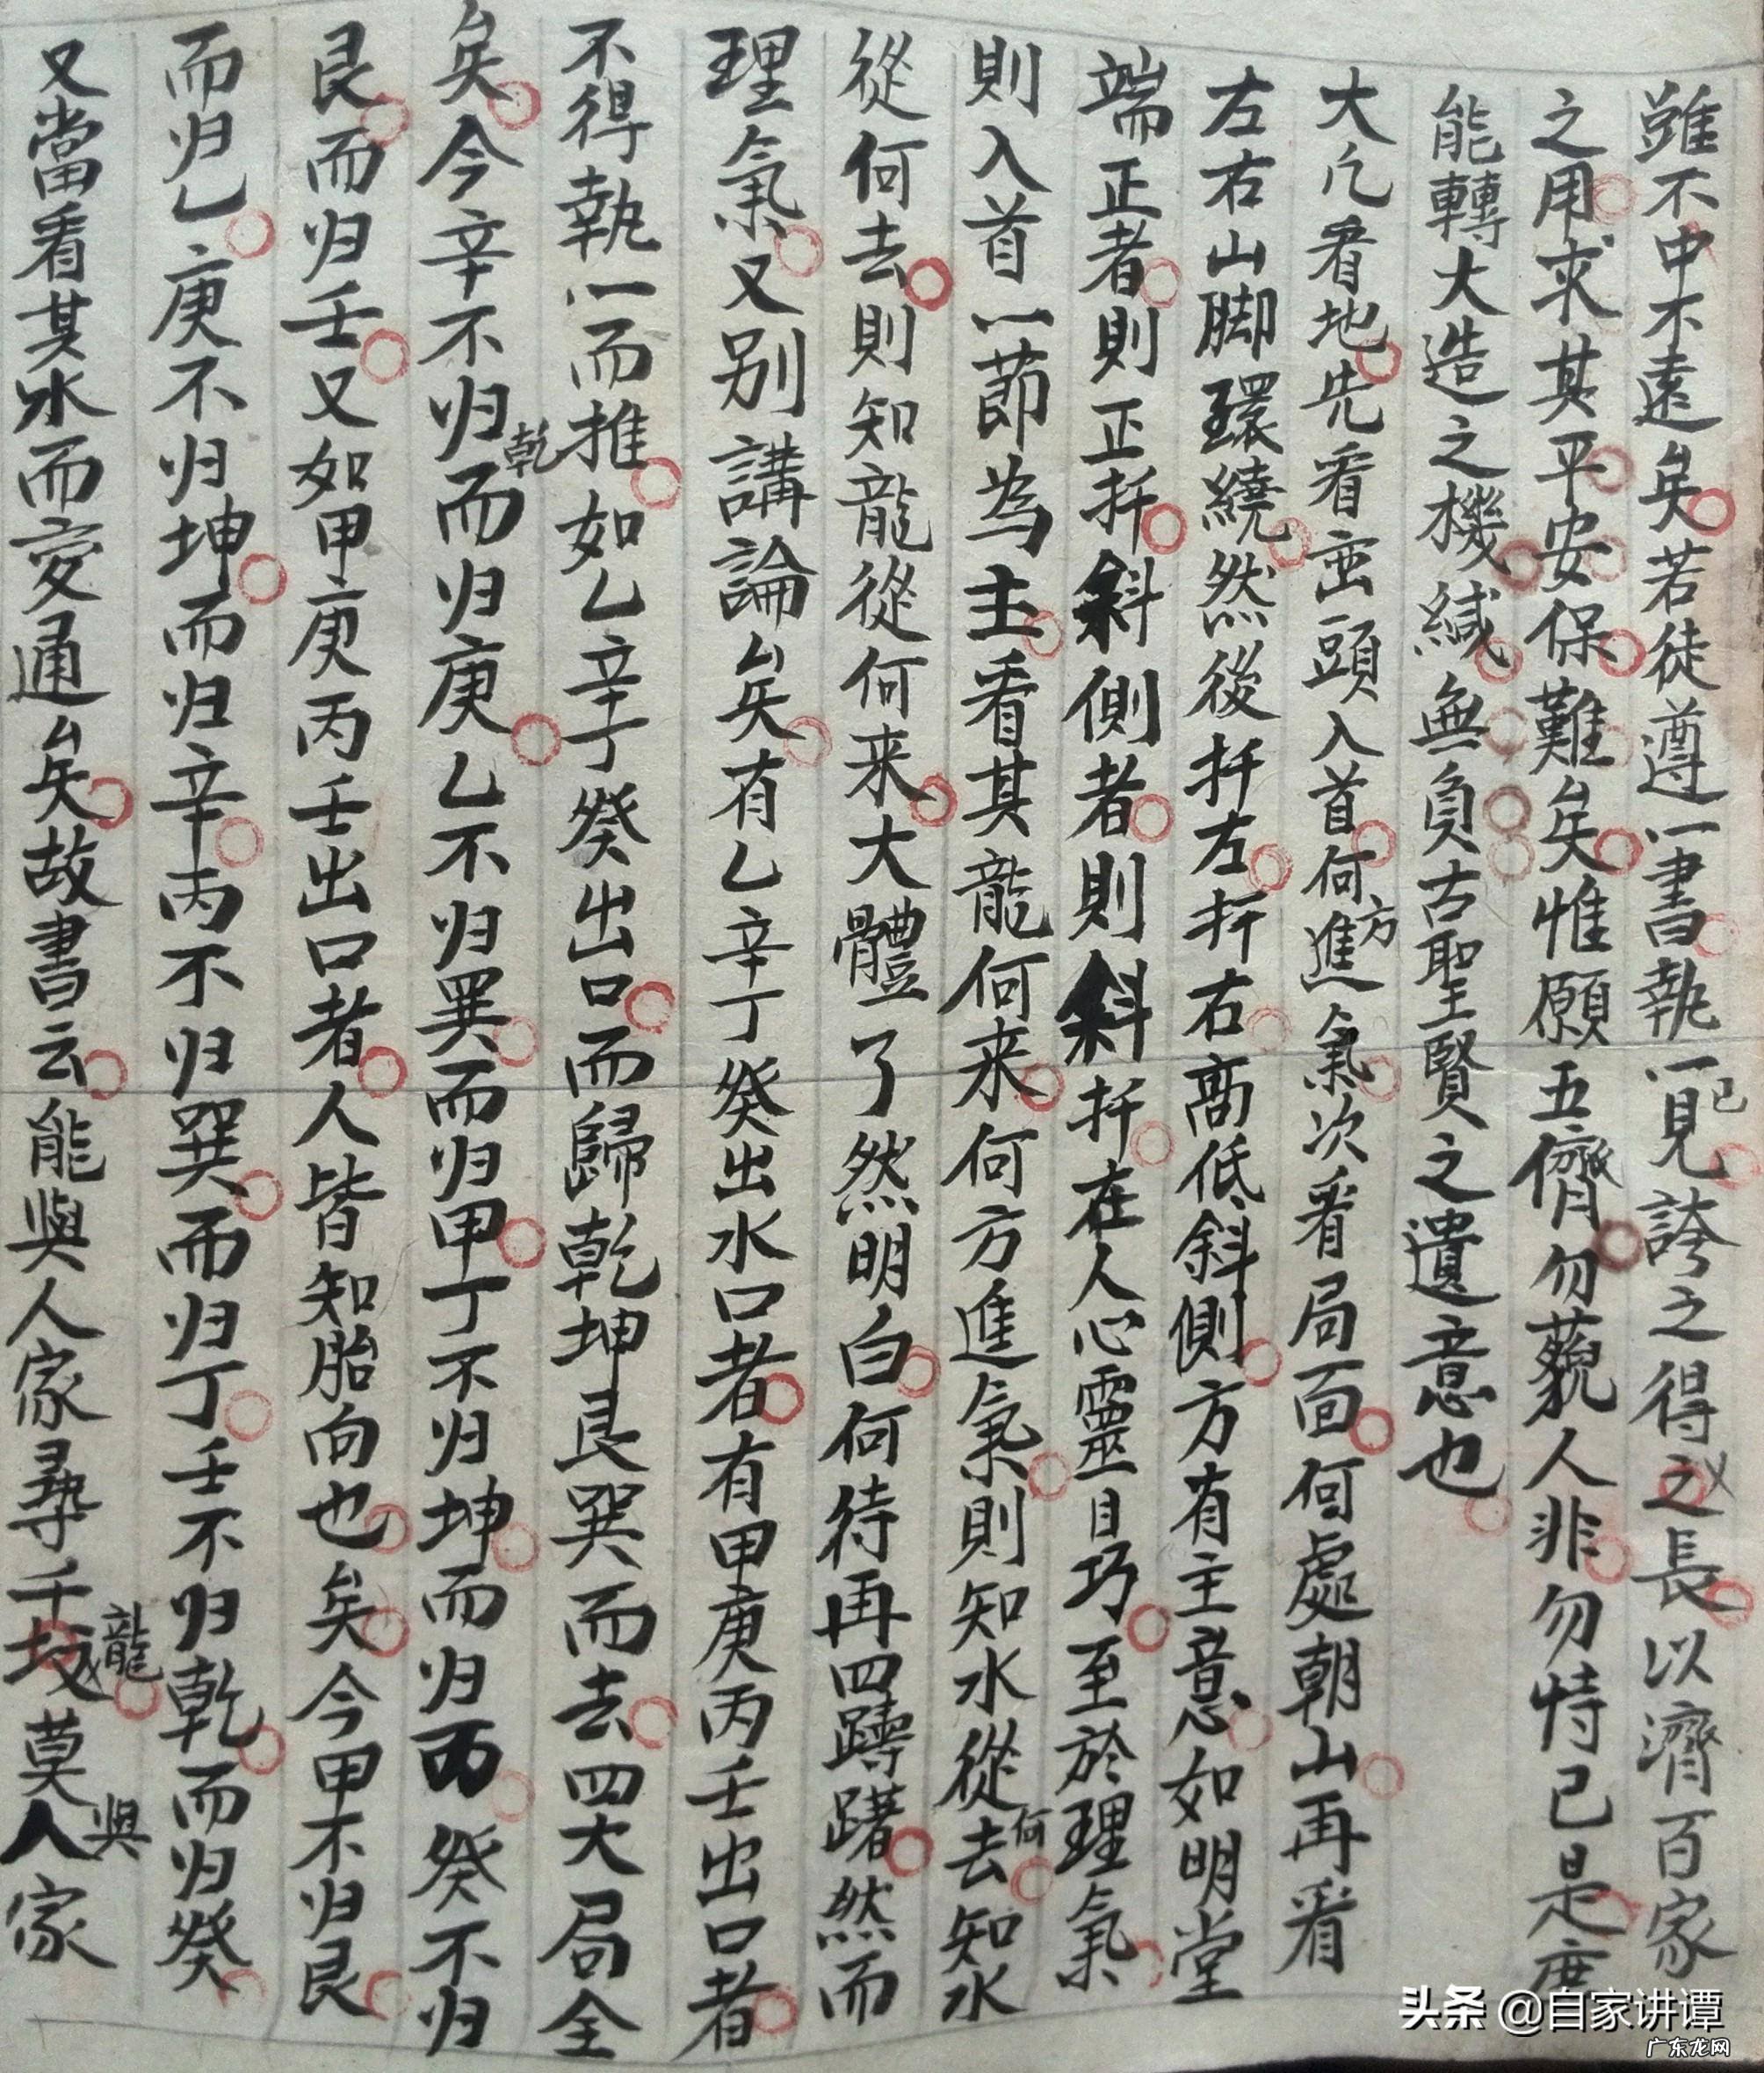 雖不中不遠矣若徒遵一書執一己見誇之得之長以濟百家
之用求其平安保難矣惟願五儕勿藐人非勿恃已是庶
能轉大造之機緘無負古聖賢之遺意也
大凡看地先看巒頭入首何方進氣次看局面何處朝山再看
左右山脚環繞然後扦左扦右高低斜側方有主意如明堂
端正者則正扦斜側者則斜扦在人心靈目巧至於理氣
則入首一節為主看其龍何来何方進氣則知水從何去知水
從何去則知龍從何来大體了然明白何待再四躊躇然而
理氣又別講論矣有乙辛丁癸出水口者有甲庚丙壬出口者
不得執一而推如乙辛丁癸出口而歸乾坤艮巽而去四大局全
矣今辛不归乾而归庚乙不归巽而归甲丁不归坤而归丙癸不归
艮而归壬又如甲庚丙壬出口者人皆知胎向也矣今甲不归艮
而归乙庚不归坤而归辛丙不归巽而归丁壬不归乾而归癸
又當看其水而变通矣故書云能與人家尋千坟龍莫與人家
头条 @自家讲谭
广东龙网